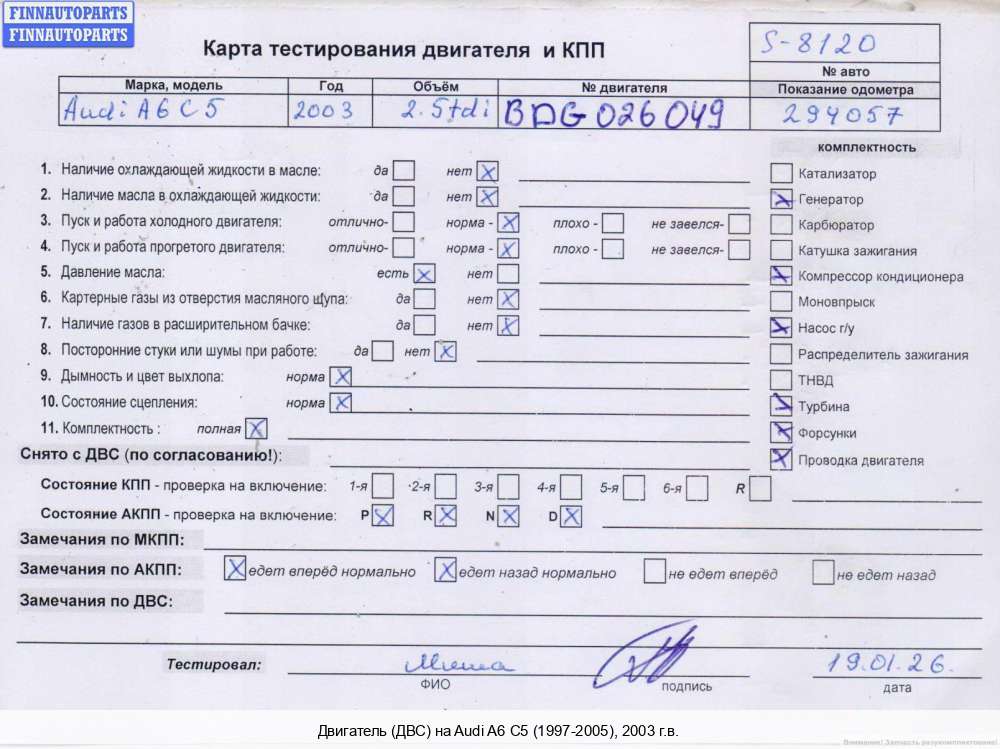 FINNAUTOPARTS
FINNAUTOPARTS
Карта тестирования двигателя и КПП
S-8120
№ авто
Марка, модель Год Объём № двигателя Показание одометра
Audi A6 C5 2003 2.5tdi BDG 026049 294057
комплектность
1. Наличие охлаждающей жидкости в масле: да нет X Катализатор
2. Наличие масла в охлаждающей жидкости: да нет X X Генератор
3. Пуск и работа холодного двигателя: отлично- норма - X плохо - не завелся- Карбюратор
4. Пуск и работа прогретого двигателя: отлично- норма - X плохо - не завелся- Катушка зажигания
5. Давление масла: есть X нет X Компрессор кондиционера
6. Картерные газы из отверстия масляного щупа: да нет X Моновпрыск
7. Наличие газов в расширительном бачке: да нет X X Насос г/у
8. Посторонние стуки или шумы при работе: да нет X Распределитель зажигания
9. Дымность и цвет выхлопа: норма X ТНВД
10. Состояние сцепления: норма X X Турбина
11. Комплектность : полная X X Форсунки
Снято с ДВС (по согласованию!): X Проводка двигателя
Состояние КПП - проверка на включение: 1-я 2-я 3-я 4-я 5-я 6-я R
Состояние АКПП - проверка на включение: P X R X N X D X
Замечания по МКПП:
Замечания по АКПП: X едет вперёд нормально X едет назад нормально не едет вперёд не едет назад
Замечания по ДВС:
Тестировал: Миша 19.01.26.
ФИО подпись дата
Двигатель (ДВС) на Audi A6 C5 (1997-2005), 2003 г.в.
Внимание! Запчасть разукомплектована!